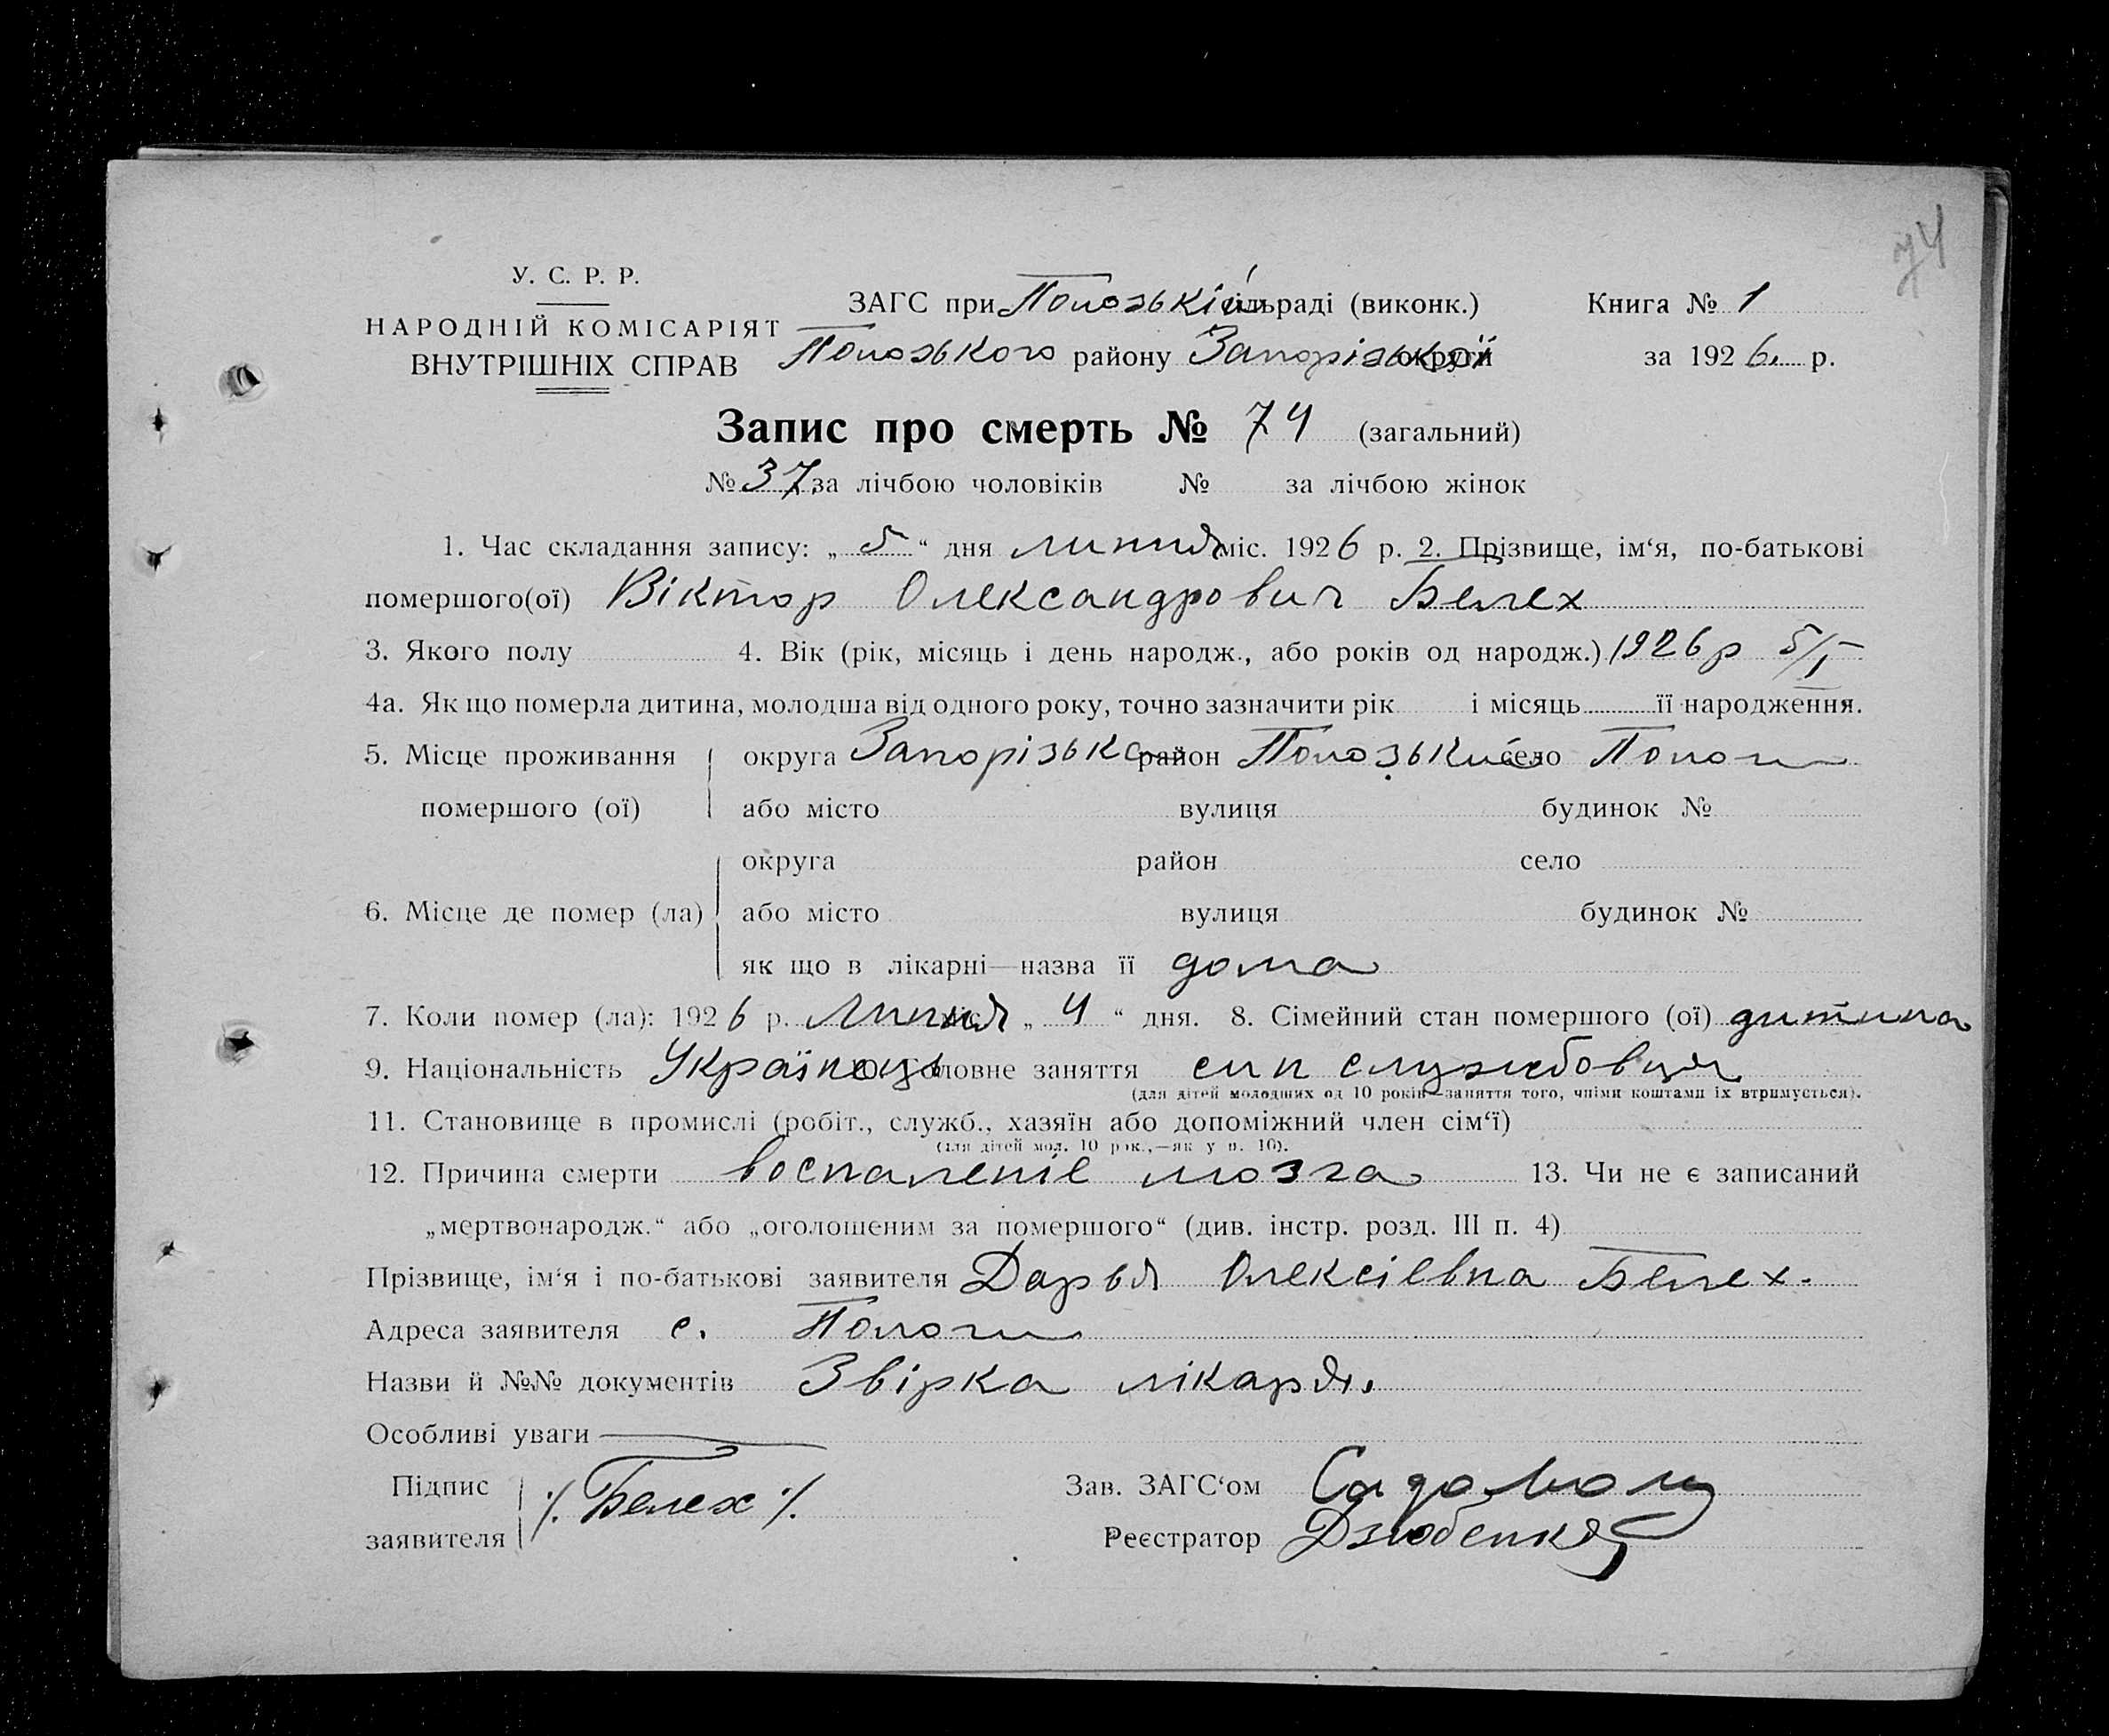 74
У. С. Р. Р.
НАРОДНІЙ КОМІСАРІЯТ
ВНУТРІШНІХ СПРАВ
ЗАГС при Пологській сільраді (виконк.) Книга № 1
Пологського району Запорізької округи за 1926 р.
Запис про смерть № 74 (загальний)
№ 37 за лічбою чоловіків № за лічбою жінок
1. Час складання запису: „ 5 “ дня липня міс. 1926 р. 2. Прізвище, ім‘я, по-батькові
помершого(ої) Віктор Олександрович Белех
3. Якого полу 4. Вік (рік, місяць і день народж., або років од народж.) 1926 р 5/I
4а. Як що померла дитина, молодша від одного року, точно зазначити рік і місяць її народження.
5. Місце проживання округа Запорізька район Пологський село Пологи
помершого (ої) або місто вулиця будинок №
округа район село
6. Місце де помер (ла) або місто вулиця будинок №
як що в лікарні—назва її дома
7. Коли помер (ла): 1926 р. Липня „ 4 “ дня. 8. Сімейний стан помершого (ої) дитина
9. Національність Українець 10. Головне заняття син службовця
(для дітей молодших од 10 років—заняття того, чиїми коштами їх втримується).
11. Становище в промислі (робіт., служб., хазяїн або допоміжний член сім‘ї)
(для дітей мол. 10 рок.,—як у п. 10).
12. Причина смерти воспаленіе мозга 13. Чи не є записаний
„мертвонародж.“ або „оголошеним за помершого“ (див. інстр. розд. III п. 4)
Прізвище, ім‘я і по-батькові заявителя Дарья Олексіевна Белех.
Адреса заявителя с. Пологи
Назви й №№ документів Звірка лікаря.
Особливі уваги
Підпис ./. Белех ./. Зав. ЗАГС‘ом
заявителя Реєстратор Дзюбенко